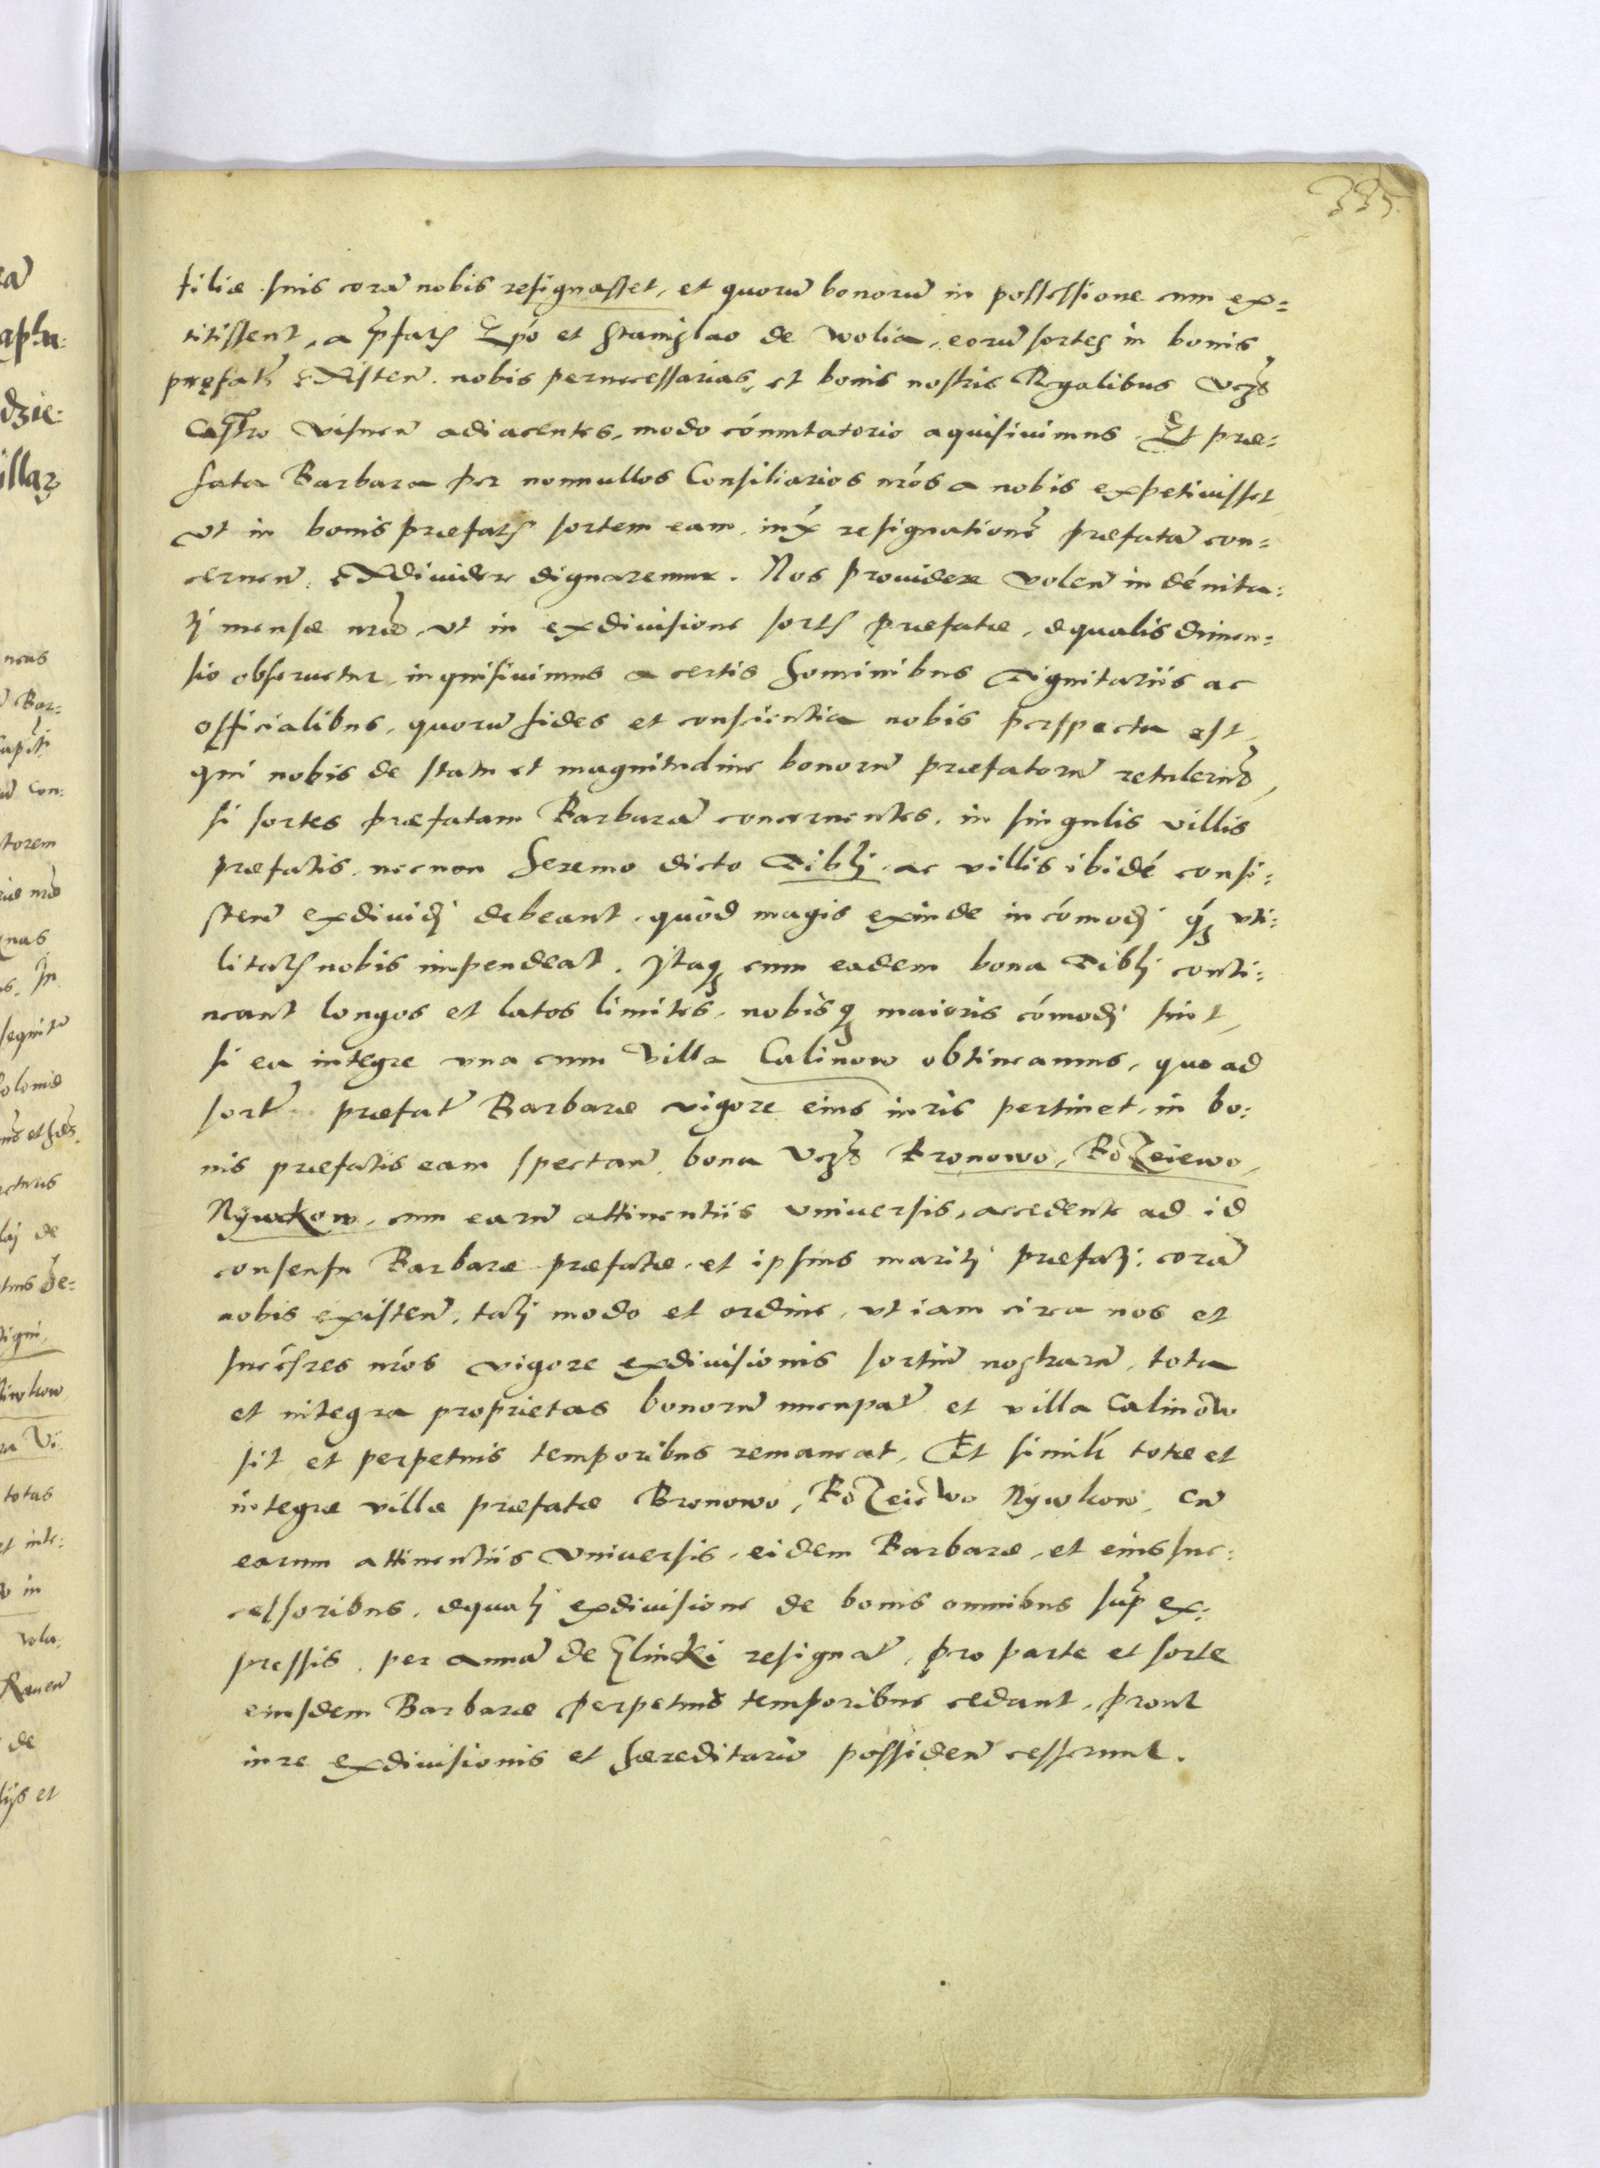 335.
filiæ suis corã nobis resignasset, et quorũ bonorũ in possessione cum ex=
titissent, a p̃fatis Ep̃o et Stanislao de Wolia, eorũ sortes in bonis
pręfatis existen̄ nobis pernecessarias, et bonis nostris Regalibus vczꝫ
Castro Visnen̄ adiacentes, modo cōmutatorio aquisiuimus. Et præ=
fata Barbara per nonnullos Consiliarios nr̃os a nobis expetiuisset,
vt in bonis præfatis sortem eam, iux̃ resignationẽ præfatã con=
cernen̄, exdiuidere dignaremur. Nos prouidere volen̄ indẽnita=
ti mensæ nr̃æ, vt in exdiuisione sortis præfatæ, æqualis dimen=
sio obseruetur, inquisiuimus a certis hominibus Dignitariis ac
officialibus, quorũ fides et conscientia nobis perspecta est,
qui nobis de statu et magnitudine bonorũ præfatorũ retulerũt,
si sortes præfatam Barbarã concernentes, in singulis villis
præfatis, necnon heremo dicto Dibli ac villis ibidẽ consi=
sten̄ exdiuidi debeant, quòd magis exinde incōmodi q̃ꝫ vti=
litatis nobis impendeat. Itaqꝫ cum eadem bona Dibli conti=
neant longos et latos limites, nobisqꝫ maioris cōmodi sint,
si ea integre vna cum Villa Calinow obtineamus, quo ad
sortẽ præfatæ Barbaræ vigore eius iuris pertinet, in bo=
nis præfatis eam spectan̄, bona vczꝫ Bronowo, Rozeiewo,
Nywkow, cum earũ attinentiis vniuersis, accedente ad id
consensu Barbaræ præfatæ, et ipsius mariti præfati, corã
nobis existen̄, tali modo et ordine, vt iam circa nos et
succ̃res nr̃os vigore exdiuisionis sortiũ nostrarũ, tota
et integra proprietas bonorũ nuncupat̃ et villa Calinow
sit et perpetuis temporibus remaneat, Et similĩ totæ et
integræ villæ præfatæ Bronowo, Rozeiewo Nywkow, cũ
earum attinentiis vniuersis, eidem Barbaræ, et eius suc=
cessoribus, æquali exdiuisione de bonis omnibus supr̃ ex=
pressis, per Annã de Glincki resignat̃, pro parte et sorte
eiusdem Barbaræ perpetuis temporibus cedant, prout
iure exdiuisionis et hæreditario possiden̄ cesserunt.